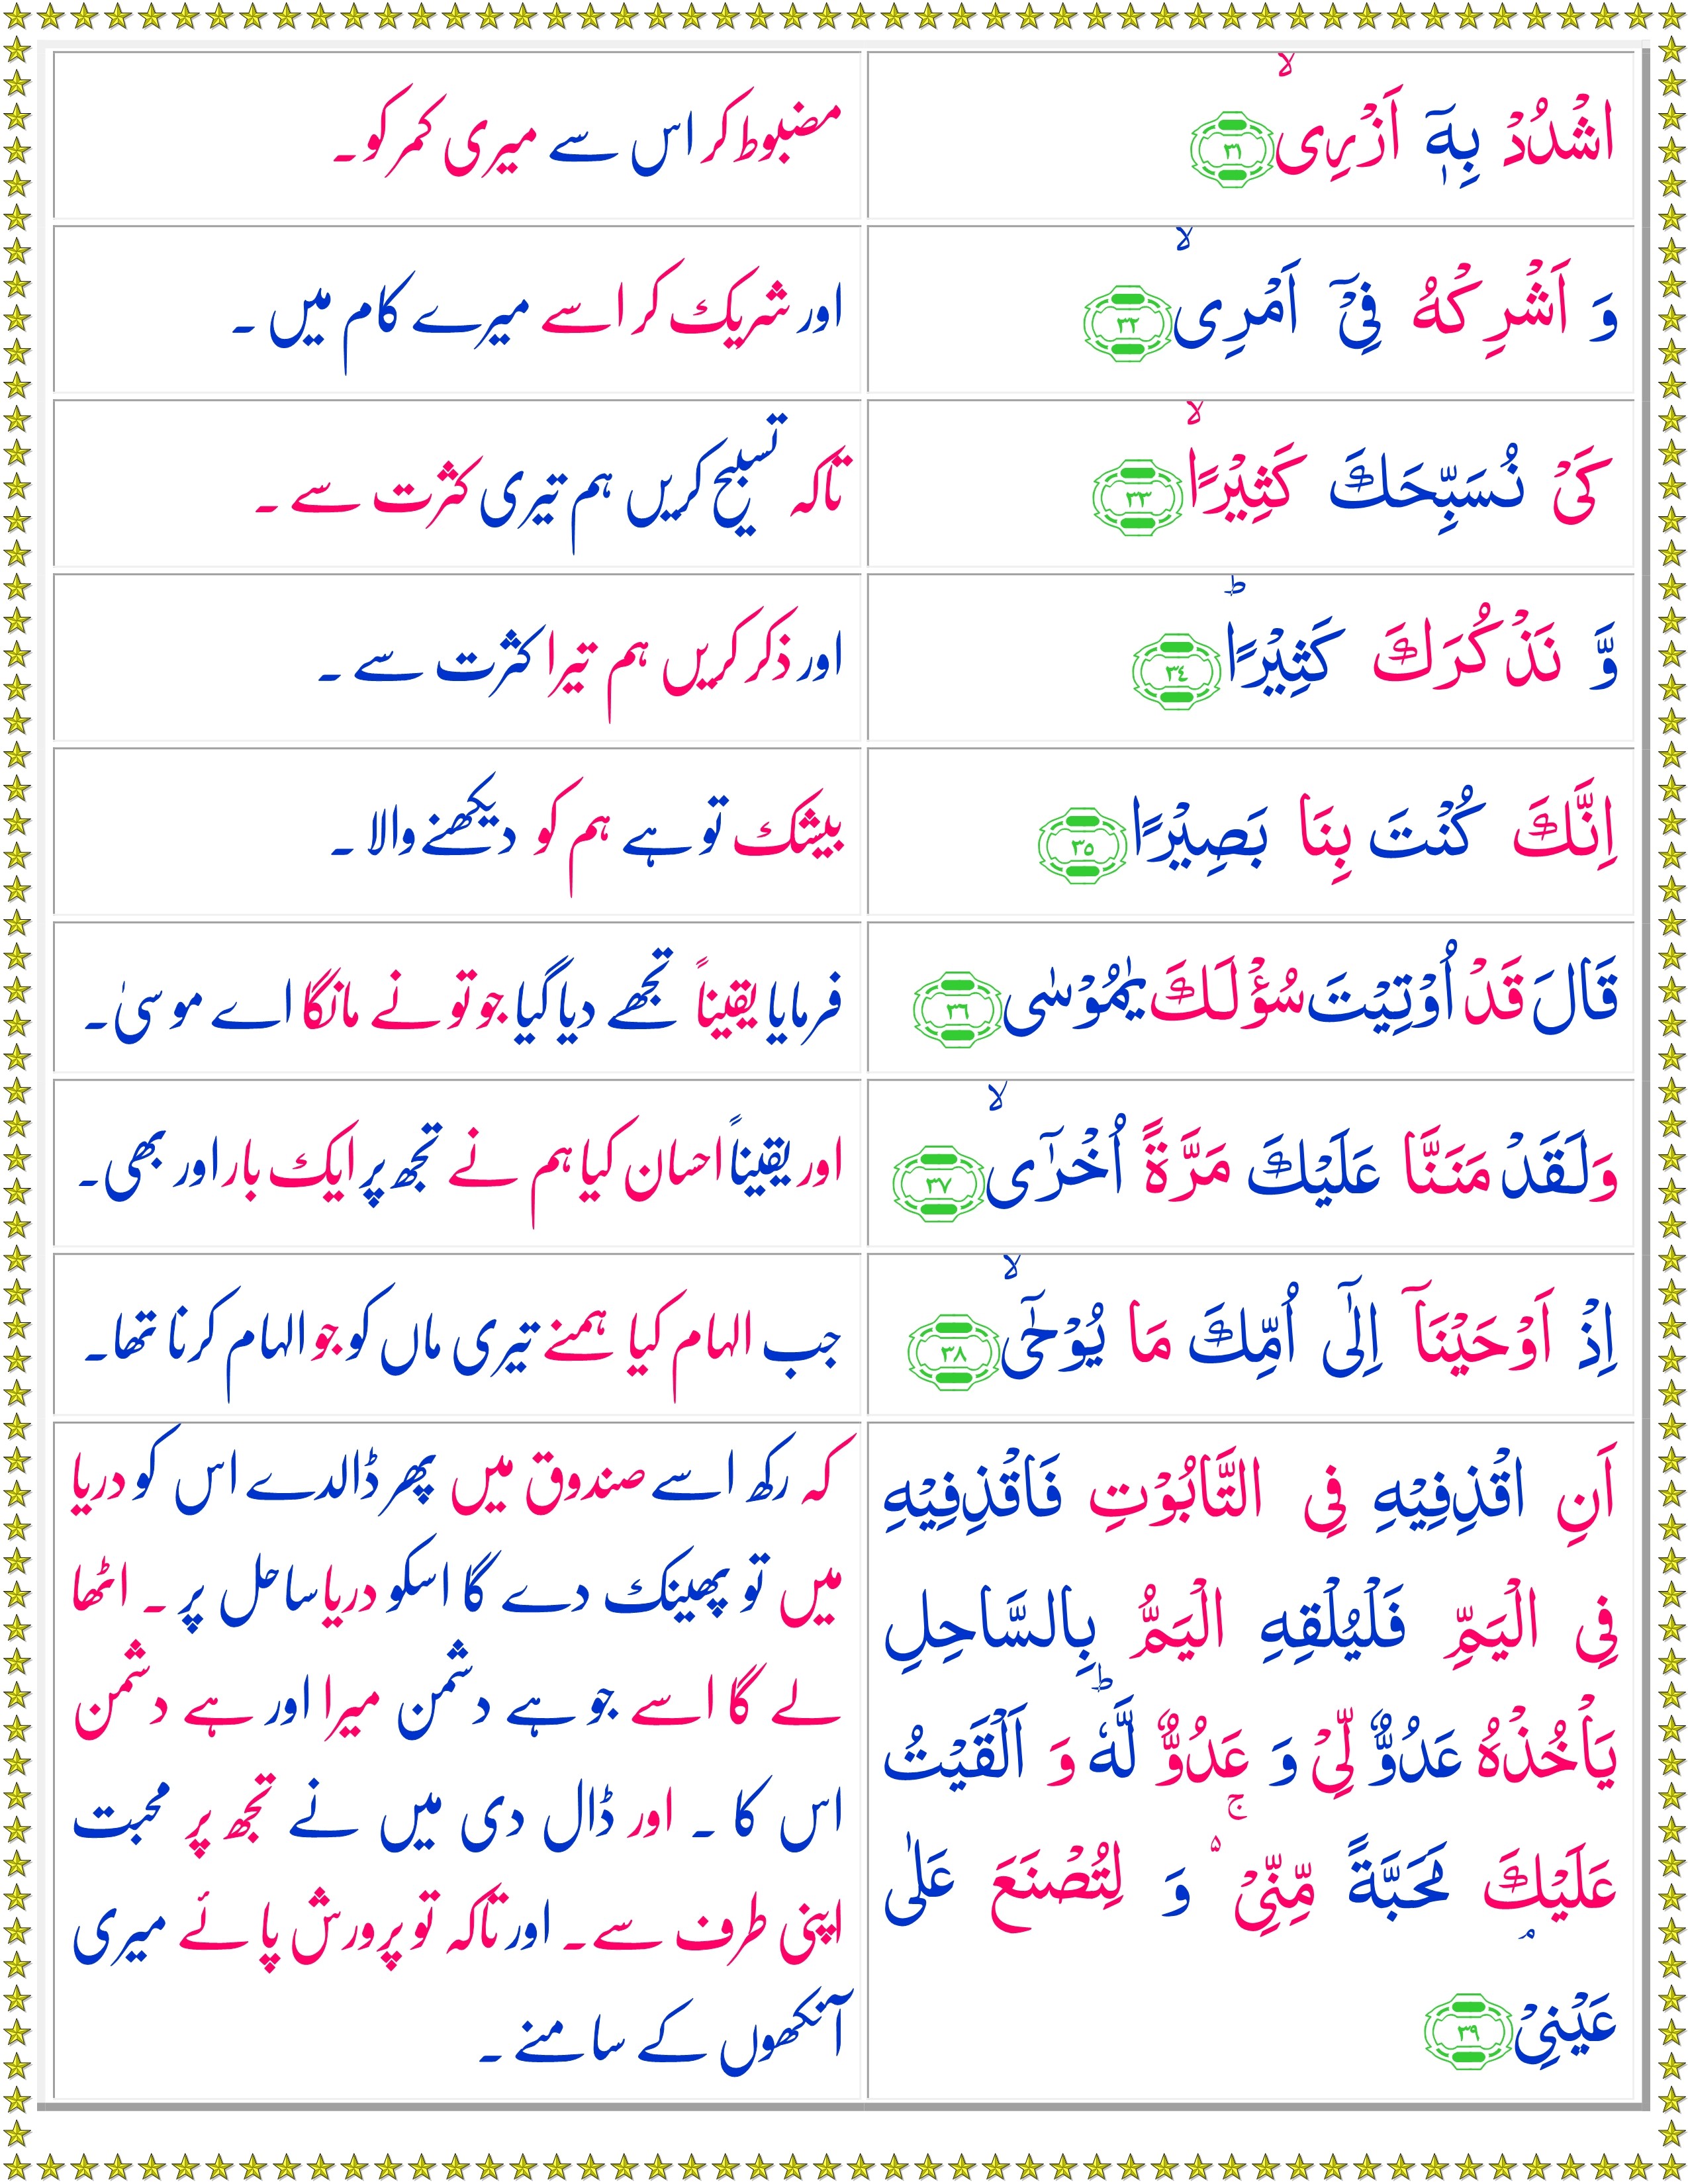 اشْدُدْ بِهٖۤ اَزْرِی ۙ ﴿۳۱﴾
مضبوط کر اس سے میری کمر کو۔
وَ اَشْرِكْهُ فِیْۤ اَمْرِی ۙ ﴿۳۲﴾
اور شریک کر اسے میرے کام میں ۔
كَیْ نُسَبِّحَكَ كَثِیْرًا ۙ ﴿۳۳﴾
تاکہ تسبیح کریں ہم تیری کثرت سے ۔
وَّ نَذْكُرَكَ كَثِیْرًا ؕ ﴿۳٤﴾
اور ذکر کریں ہم تیرا کثرت سے ۔
اِنَّكَ كُنْتَ بِنَا بَصِیْرًا ﴿۳۵﴾
بیشک تو ہے ہم کو دیکھنے والا ۔
قَالَ قَدْ اُوْتِیْتَ سُؤْلَكَ یٰمُوْسٰی ﴿۳٦﴾
فرمایا یقیناً تجھے دیا گیا جو تو نے مانگا اے موسیٰ۔
وَلَقَدْ مَنَنَّا عَلَیْكَ مَرَّةً اُخْرٰۤی ۙ ﴿۳۷﴾
اور یقیناً احسان کیا ہم نے تجھ پر ایک بار اور بھی۔
اِذْ اَوْحَیْنَاۤ اِلٰۤی اُمِّكَ مَا یُوْحٰۤی ۙ ﴿۳۸﴾
جب الہام کیا ہمنے تیری ماں کو جو الہام کرنا تھا۔
اَنِ اقْذِفِیْهِ فِی التَّابُوْتِ فَاقْذِفِیْهِ
فِی الْیَمِّ فَلْیُلْقِهِ الْیَمُّ بِالسَّاحِلِ
یَاْخُذْهُ عَدُوٌّ لِّیْ وَ عَدُوٌّ لَّهٗ ؕ وَ اَلْقَیْتُ
عَلَیْكَ مَحَبَّةً مِّنِّیْ ۚ۬ وَ لِتُصْنَعَ عَلٰی
عَیْنِیْ ۘ ﴿۳۹﴾
کہ رکھ اسے صندوق میں پھر ڈالدے اس کو دریا
میں تو پھینک دے گا اسکو دریا ساحل پر ۔ اٹھا
لے گا اسے جو ہے دشمن میرا اور ہے دشمن
اس کا ۔ اور ڈال دی میں نے تجھ پر محبت
اپنی طرف سے۔ اور تاکہ تو پرورش پائے میری
آنکھوں کے سامنے ۔